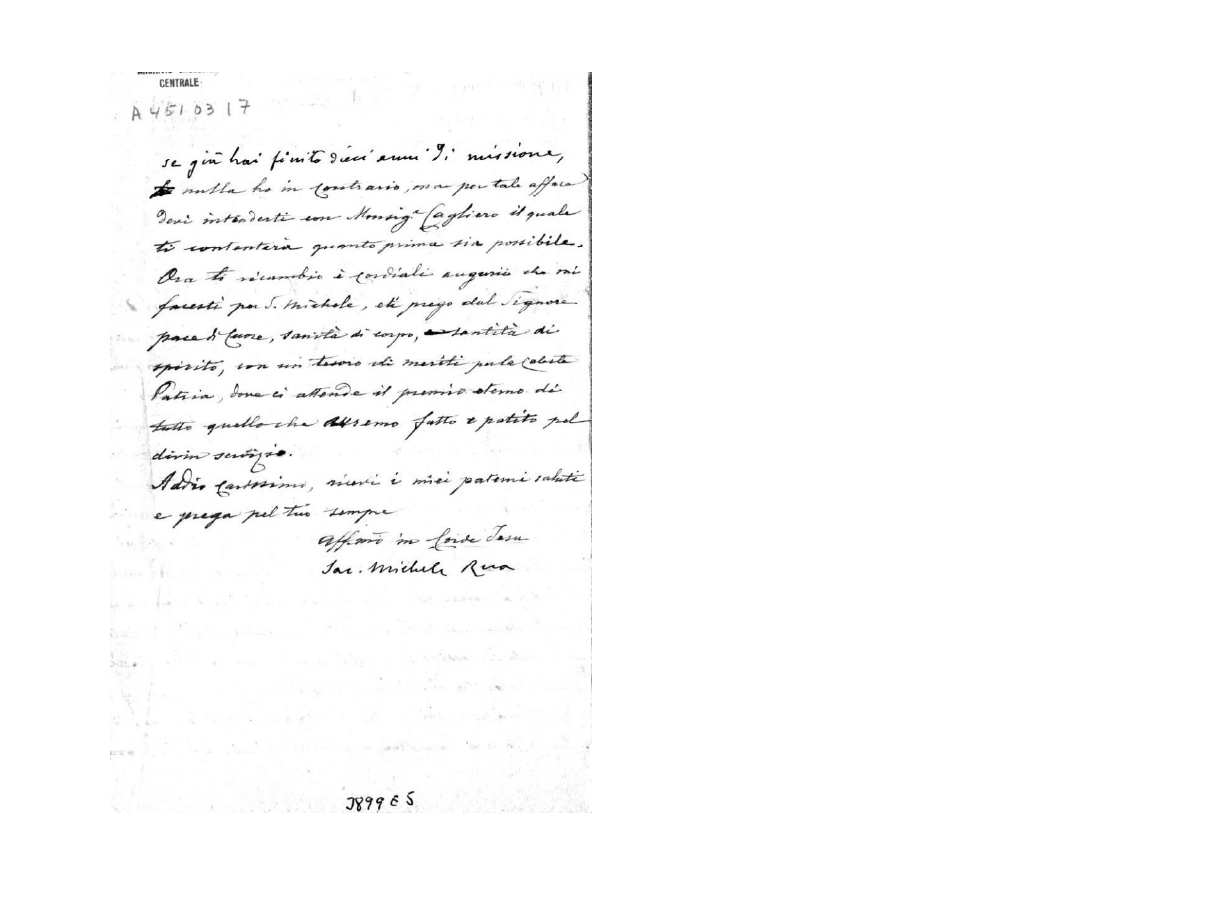 CENTRALE
A 4510317
se già hai finito dieci anni di missione,
nulla ho in contrario, ma per tale affare
devi intenderti con Monsigr Cagliero il quale
ti contenterà quanto prima sia possibile.
Ora ti ricambio i cordiali augurii che mi
facesti per S. Michele, e ti prego dal Signore
pace di Cuore, sanità di corpo, santità di
spirito, con un tesoro di meriti per la Celeste
Patria, dove ci attende il premio eterno di
tutto quello che avremo fatto e patito pel
divin servizio.
Addio Carissimo, ricevi i miei paterni saluti
e prega pel tuo sempre
Affmo in Corde Jesu
Sac. Michele Rua
3899 E 5